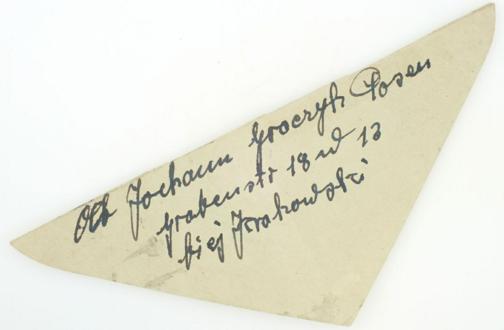 Ob Johann Groczyk Posen
grabenstr 18 w 13
biej Krakowski